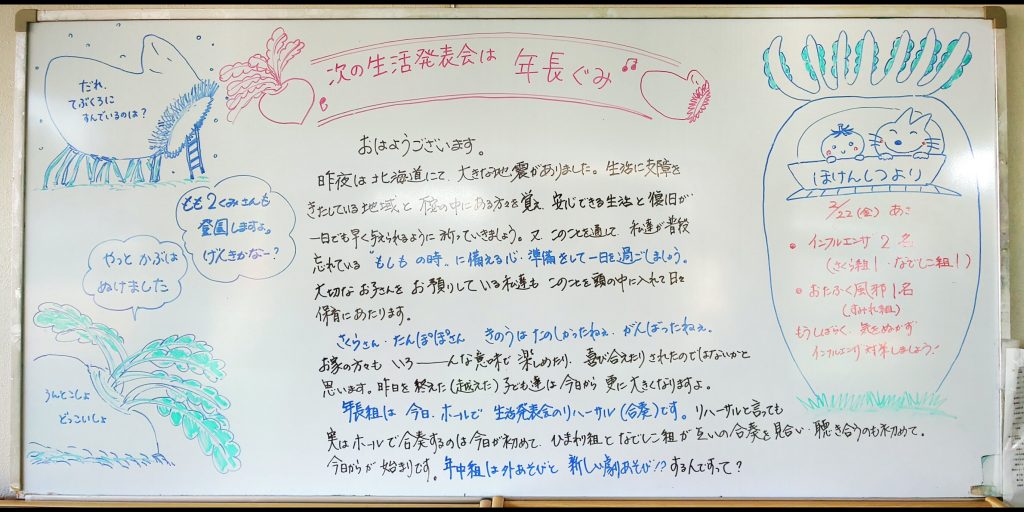 次の生活発表会は 年長ぐみ
だれ、
てぶくろに
すんでいるのは?
もも2くみさんも
登園しますよ。
げんきかなー?
やっと かぶは
ぬけました
うんとこしょ
どっこいしょ
おはようございます。
昨夜は北海道にて、大きな地震がありました。生活に支障を
きたしている地域と 極の中にある方々を覚え、安心できる生活と復旧が
一日でも早く与えられるように祈っていきましょう。又 このことを通して、私達が普段
忘れている "もしもの時" に備える心・準備をして一日を過ごしましょう。
大切なお子さんを お預りしている私達も このことを頭の中に入れて日々
保育にあたります。
さくらさん・たんぽぽさん きのうはたのしかったねぇ、がんばったねぇ。
お家の方々も いろーーんな意味で 楽しめたり、喜び合えたりされたのではないかと
思います。昨日を終えた(越えた)子ども達は今日から 更に大きくなりますよ。
年長組は 今日、ホールで 生活発表会のリハーサル(合奏)です。リハーサルと言っても
実はホールで合奏するのは今日が初めて、ひまわり組となでしこ組が互いの合奏を見合い・聴き合うのも初めて。
今日からが始まりです。年中組は外あそびと 新しい劇あそび!?するんですって?
ほけんしつより
2/22(金) あさ
● インフルエンザ 2名
(さくら組1・なでしこ組1)
● おたふく風邪1名
(すみれ組)
もうしばらく、気をぬかず
インフルエンザ対策しましょう!